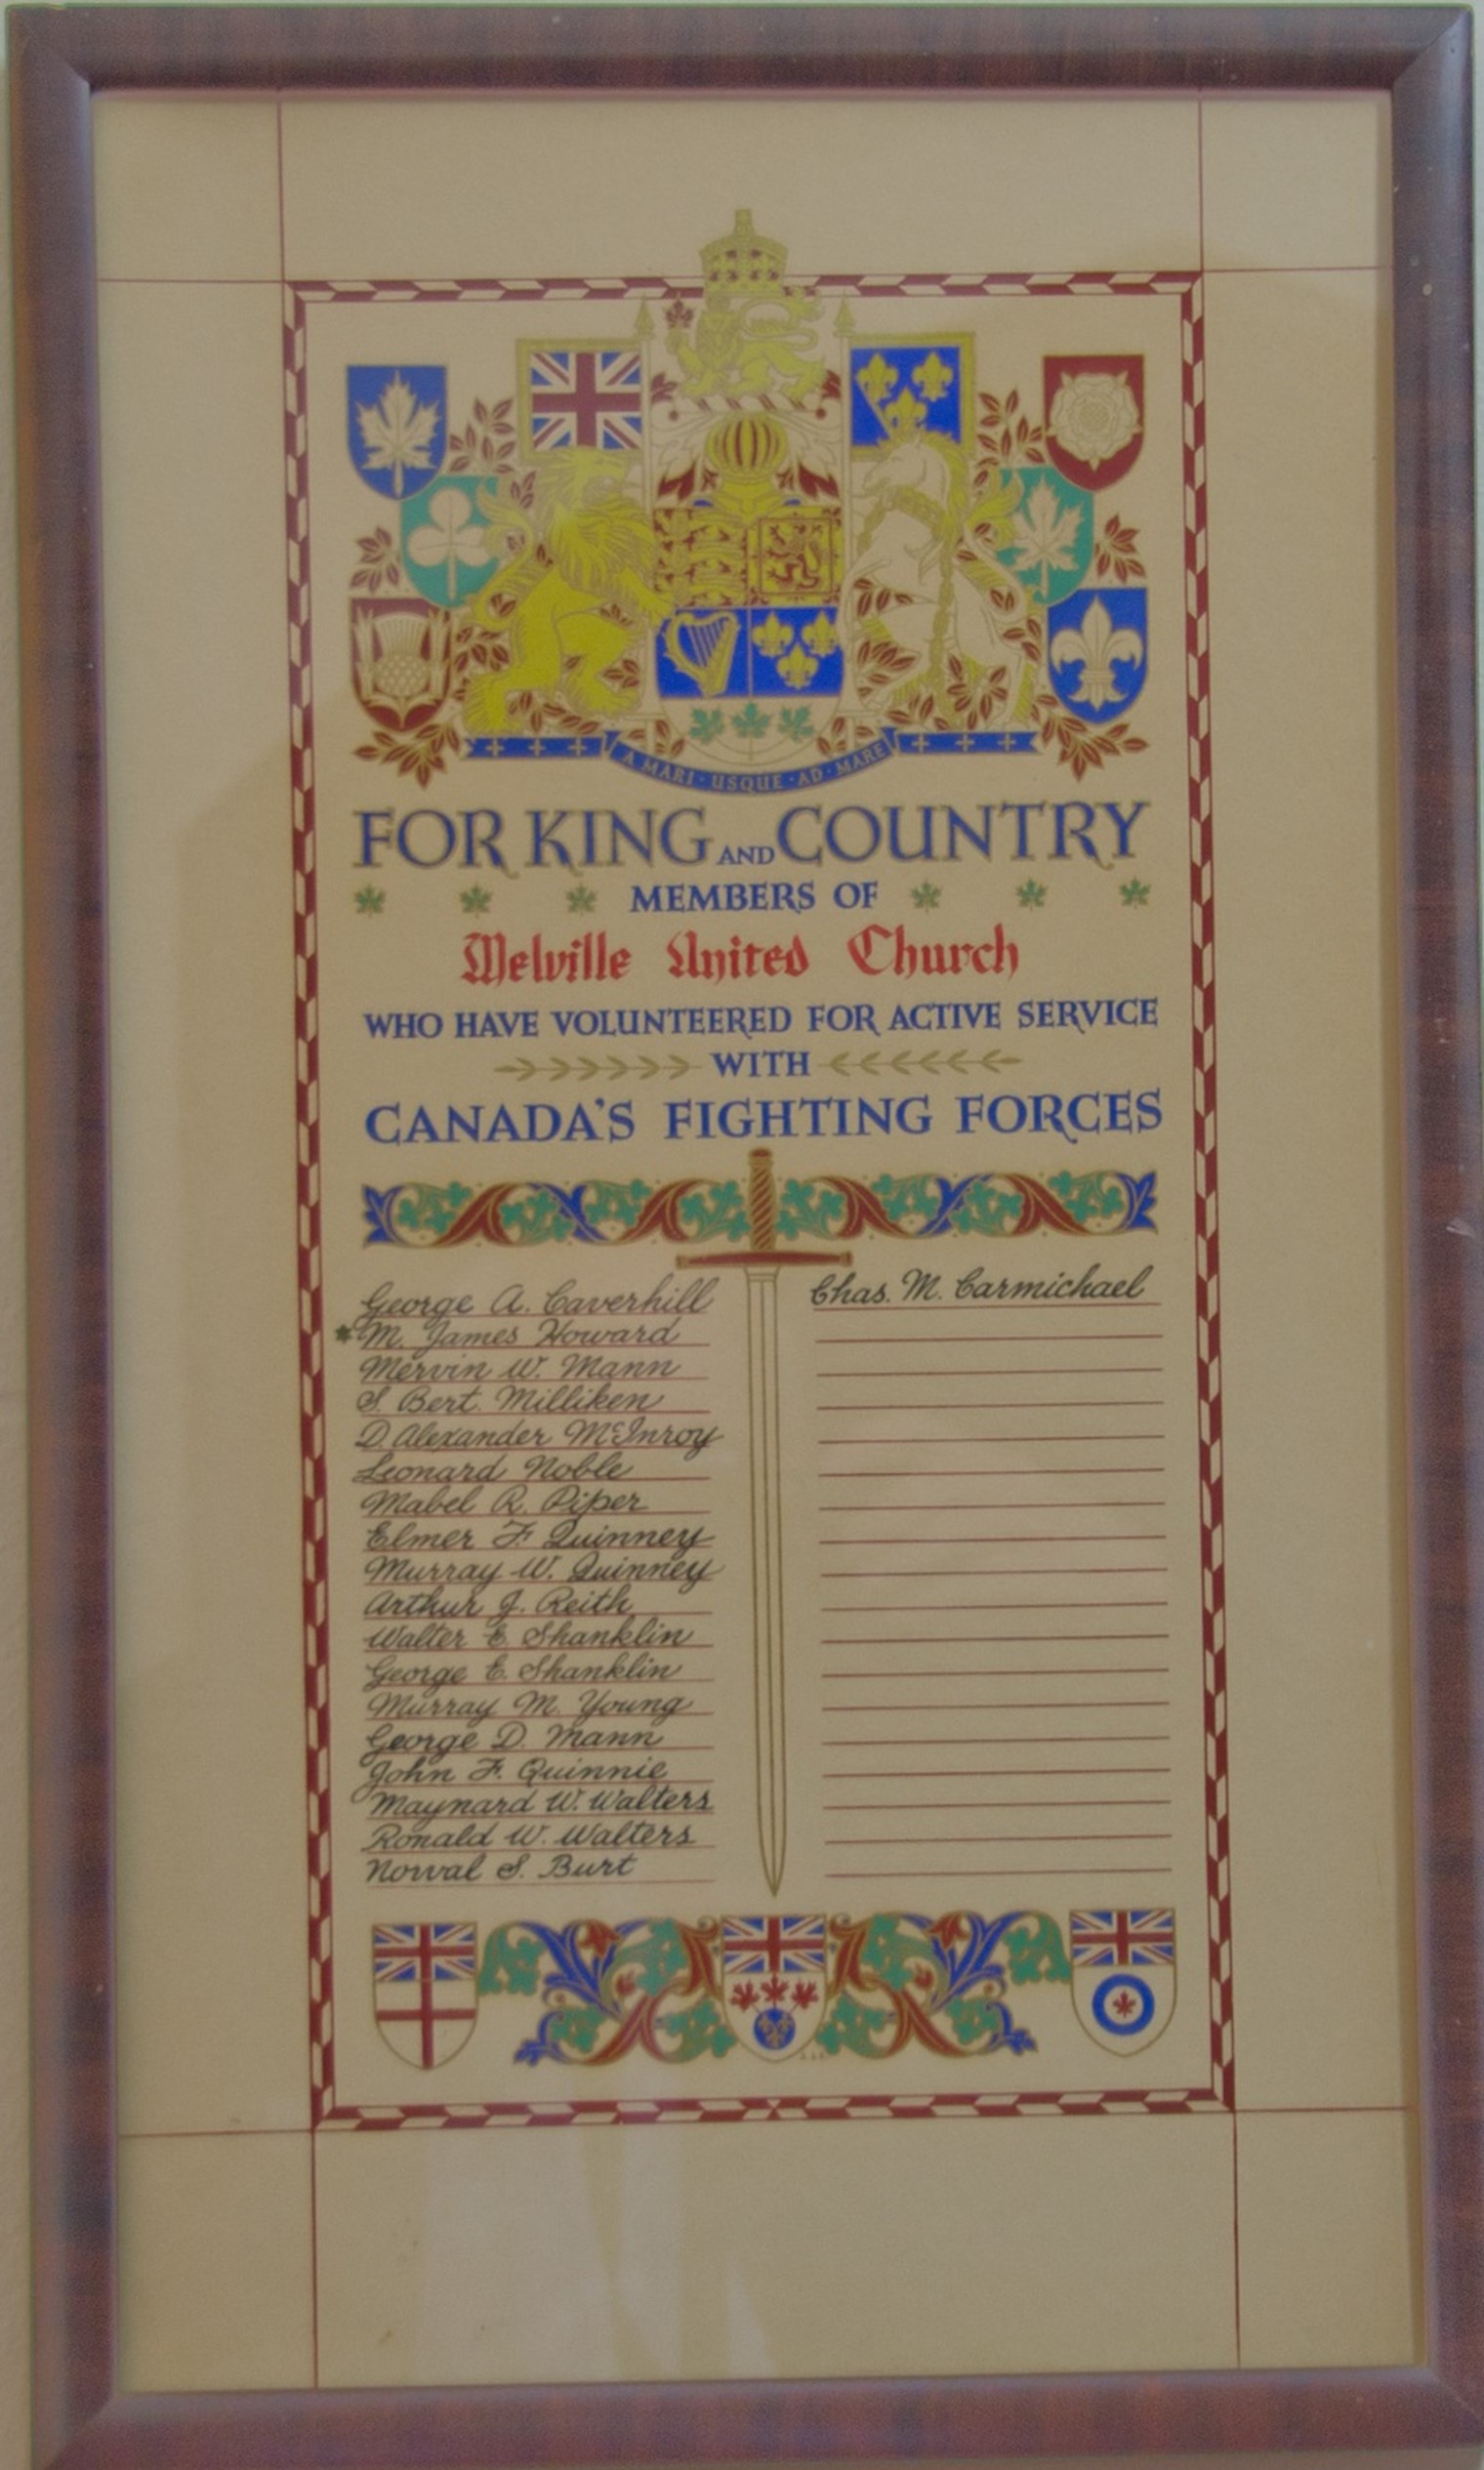 A MARI · USQUE · AD · MARE
FOR KING AND COUNTRY
MEMBERS OF
Melville United Church
WHO HAVE VOLUNTEERED FOR ACTIVE SERVICE
WITH
CANADA'S FIGHTING FORCES
George A. Caverhill
* M. James Howard
Mervin W. Mann
S. Bert. Milliken
D. Alexander McInroy
Leonard Noble
Mabel R. Piper
Elmer F. Quinney
Murray W. Quinney
Arthur J. Reith
Walter E. Shanklin
George E. Shanklin
Murray M. Young
George D. Mann
John F. Quinnie
Maynard W. Walters
Ronald W. Walters
Norval S. Burt
Chas. M. Carmichael